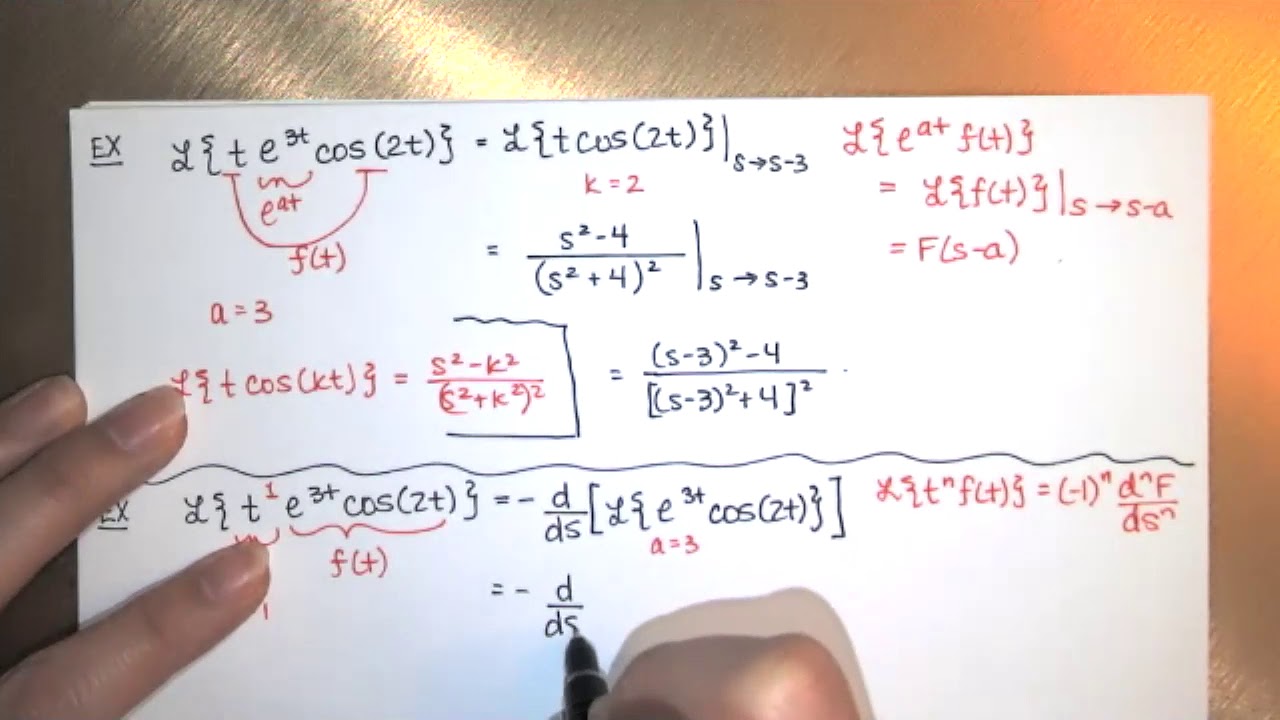 EX ℒ{t e^{3t} cos(2t)} = ℒ{t cos(2t)}|_{s→s-3}
ℒ{e^{at} f(t)}
k = 2
= ℒ{f(t)}|_{s→s-a}
e^{at}
f(t)
= \frac{s^2-4}{(s^2+4)^2}|_{s→s-3}
= F(s-a)
a = 3
ℒ{t cos(kt)} = \frac{s^2-k^2}{(s^2+k^2)^2}
= \frac{(s-3)^2-4}{[(s-3)^2+4]^2}
EX ℒ{t^1 e^{3t} cos(2t)} = - \frac{d}{ds}[ℒ{e^{3t} cos(2t)}]
ℒ{t^n f(t)} = (-1)^n \frac{d^nF}{ds^n}
f(t)
a = 3
= - \frac{d}{ds}